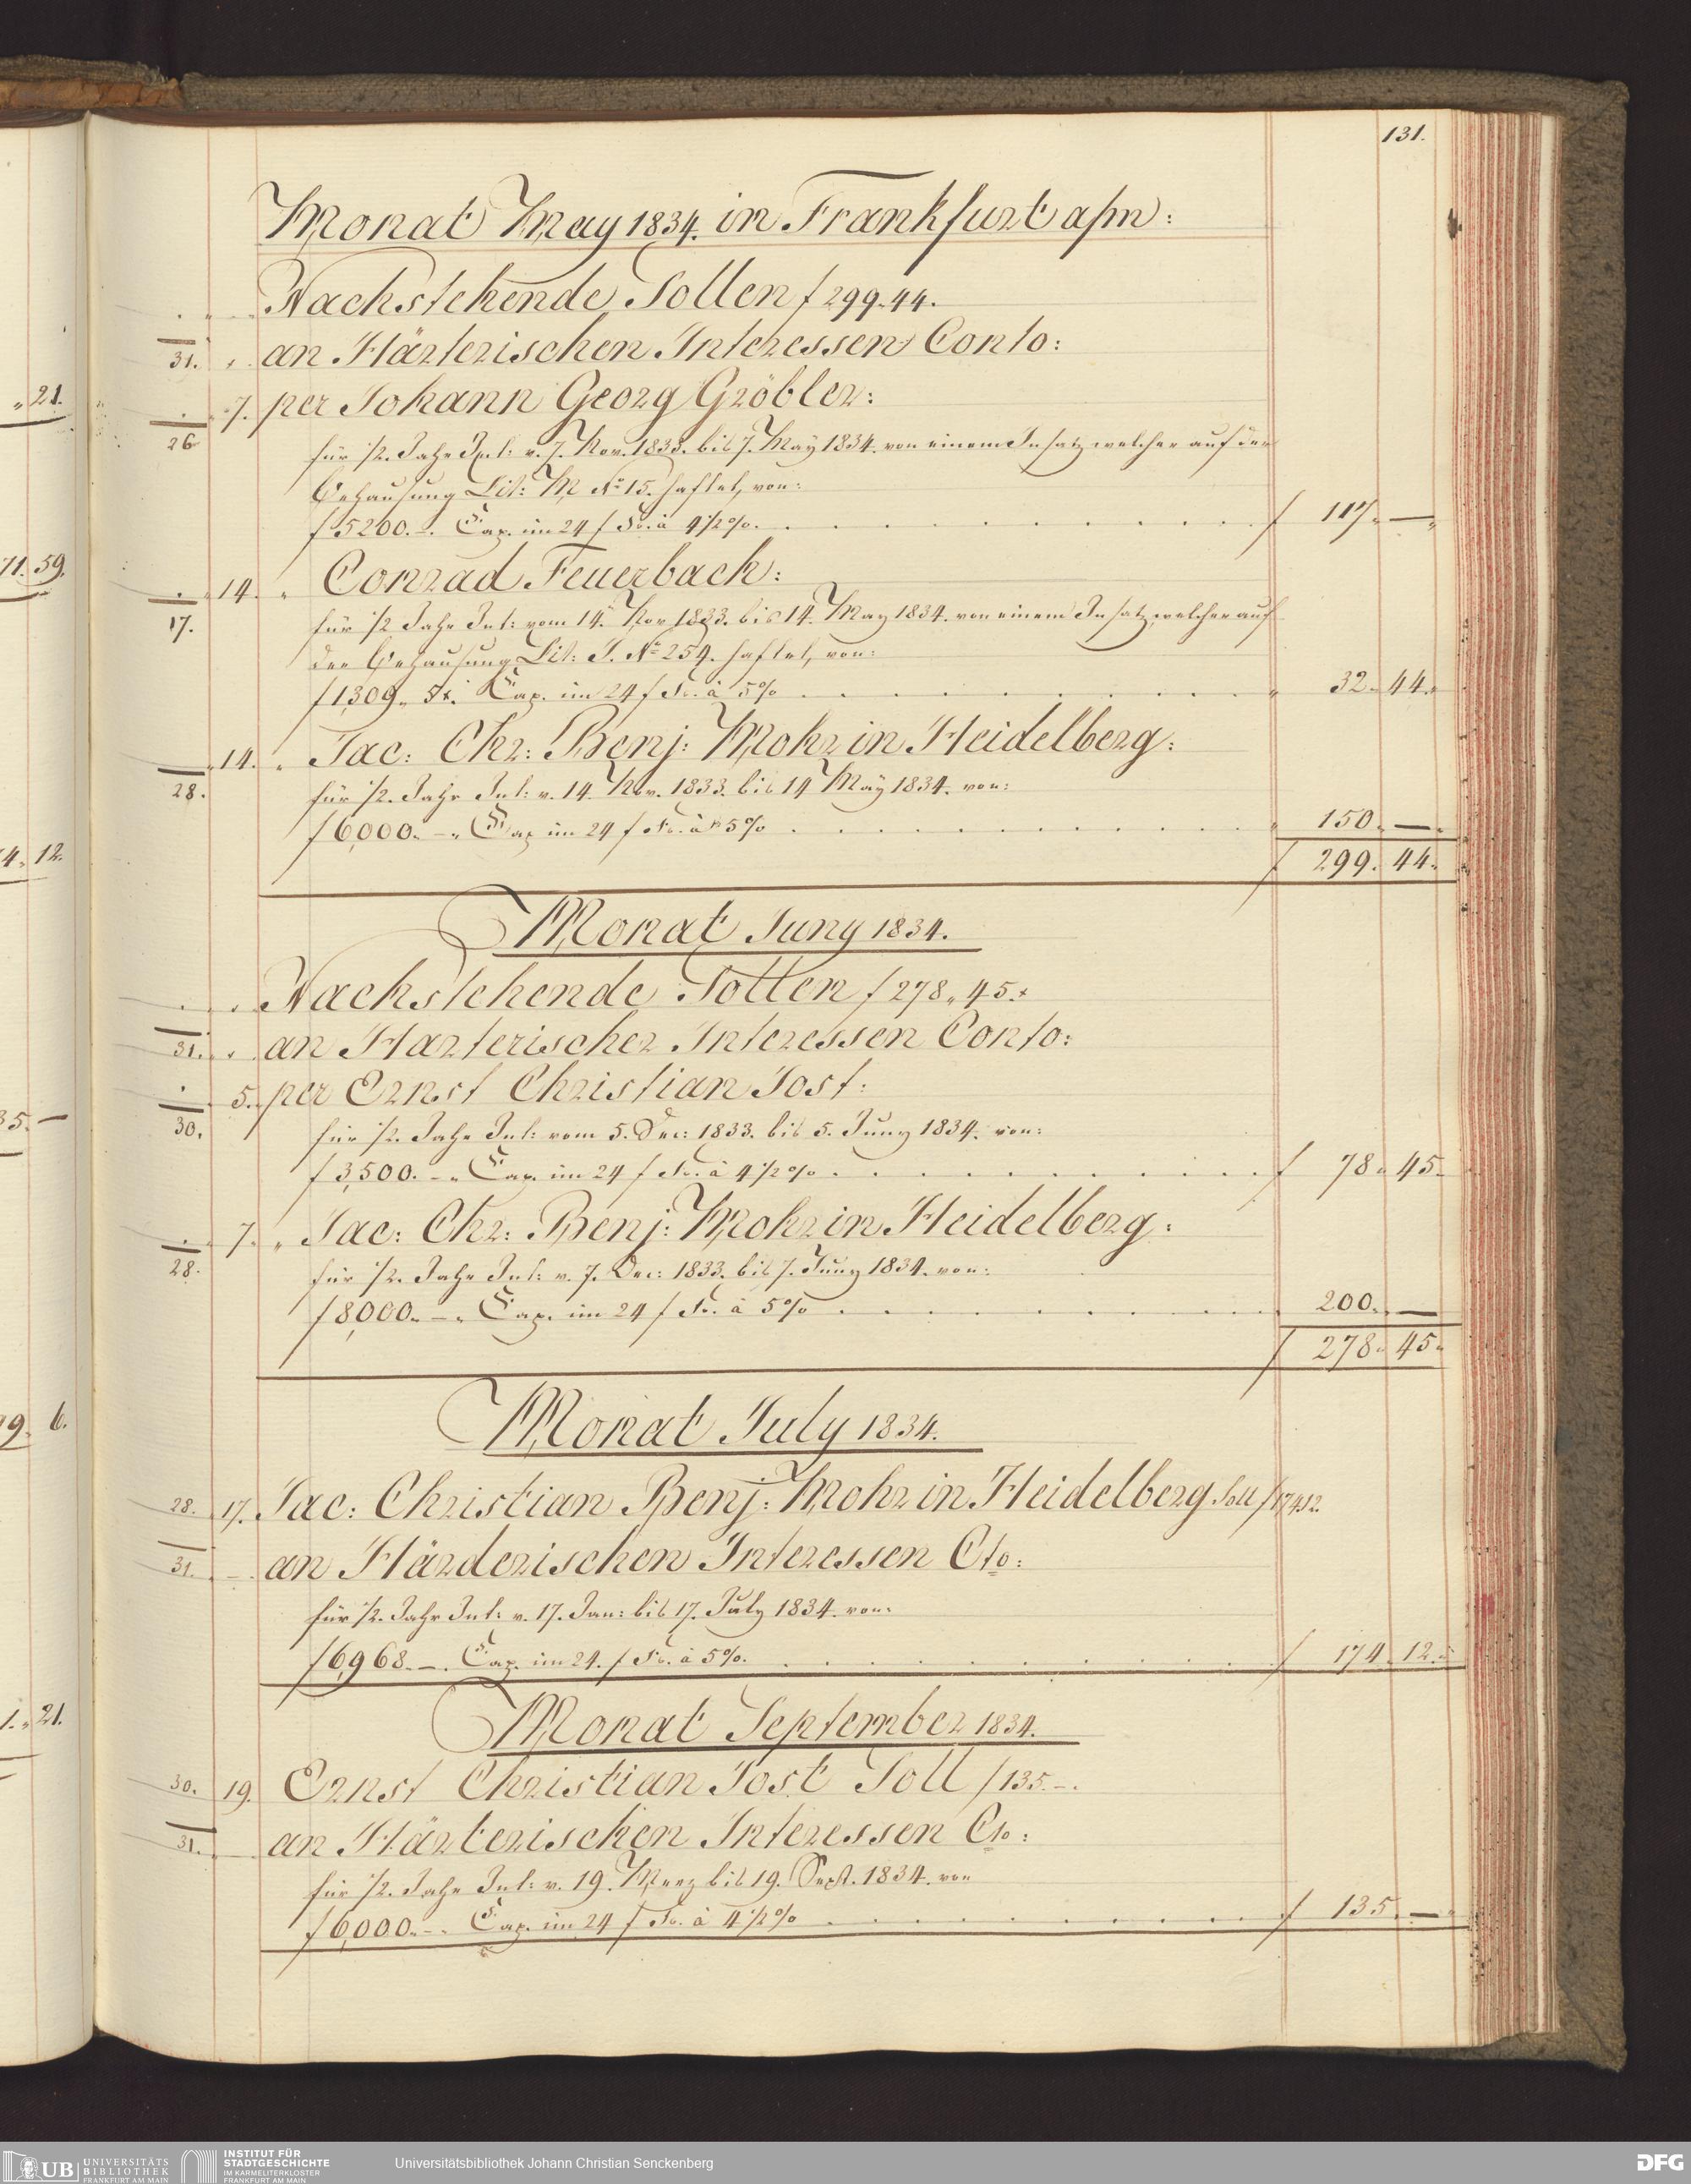 131.
Monat May 1834. in Frankfurt a/m:
Nachstehende Sollen f 299.44.
31. an Härterischen Interessen Conto:
7. per Johann Georg Gröbler:
26
für 1/2. Jahr Int: v. 7. Nov. 1833. bis 7. May 1834. von einem Insatz welcher auf der
Behausung Lit: M No 15. haftet, von:
f 5200. –. Cap. im 24 f Fs. à 4 1/2 %. f 117 „ — „
14. „ Conrad Feuerbach:
17.
für 1/2 Jahr Int: vom 14. Nov 1833. bis 14. May 1834. von einem Insatz, welcher auf
der Behausung Lit: J. No 254. haftet, von:
f 1,309 „ 5x. Cap. im 24 f Fs. à 5 % „ 32 „ 44 „
14. „ Jac: Chr: Benj: Mohr in Heidelberg:
28.
für 1/2. Jahr Int: v. 14. Nov. 1833. bis 14 May 1834. von:
f 6,000. – „ Cap im 24 f Fs. à 5 % „ 150 „ — „
f 299. 44 „
Monat Juny 1834.
Nachstehende Sollen f 278 „ 45.x
31. „ an Harterischer Interessen Conto:
5. per Ernst Christian Jost:
30.
für 1/2. Jahr Int: vom 5. Dec: 1833. bis 5. Juny 1834. von:
f 3,500. – „ Cap. im 24 f Fs. à 4 1/2 % f 78 „ 45 „
7. „ Jac: Chr: Benj: Mohr in Heidelberg:
28.
für 1/2. Jahr Int: v. 7. Dec: 1833. bis 7. Juny 1834. von:
f 8,000 „ – „ Cap. im 24 f Fs. à 5 % „ 200 „ —
f 278 „ 45 „
Monat July 1834.
28. 17. Jac: Christian Benj: Mohr in Heidelberg Soll f 174.12.
31. – an Härderischen Interessen Cto:
für 1/2. Jahr Int: v. 17. Jan: bis 17. July 1834. von:
f 6,968. –. Cap. im 24. f Fs. à 5 %. f 174 „ 12 „
Monat September 1834.
30. 19. Ernst Christian Jost Soll f 135. –.
31. – an Härterischen Interessen Cto:
für 1/2. Jahr Int: v. 19. Merz bis 19. Sept. 1834. von
f 6,000. –. Cap. im 24 f Fs. à 4 1/2 % f 135 „ — „
„ 21.
71. 59.
4 „ 12.
35. –
9. 6.
1. „ 21.
UB UNIVERSITÄTS
BIBLIOTHEK
FRANKFURT AM MAIN
INSTITUT FÜR
STADTGESCHICHTE
IM KARMELITERKLOSTER
FRANKFURT AM MAIN
Universitätsbibliothek Johann Christian Senckenberg
DFG